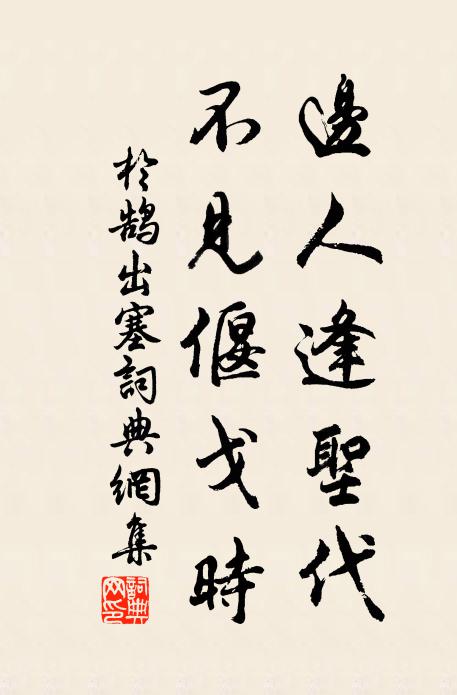 邊人逢聖代
不見偃戈時
於鵠出塞詞典網集
詞典网印